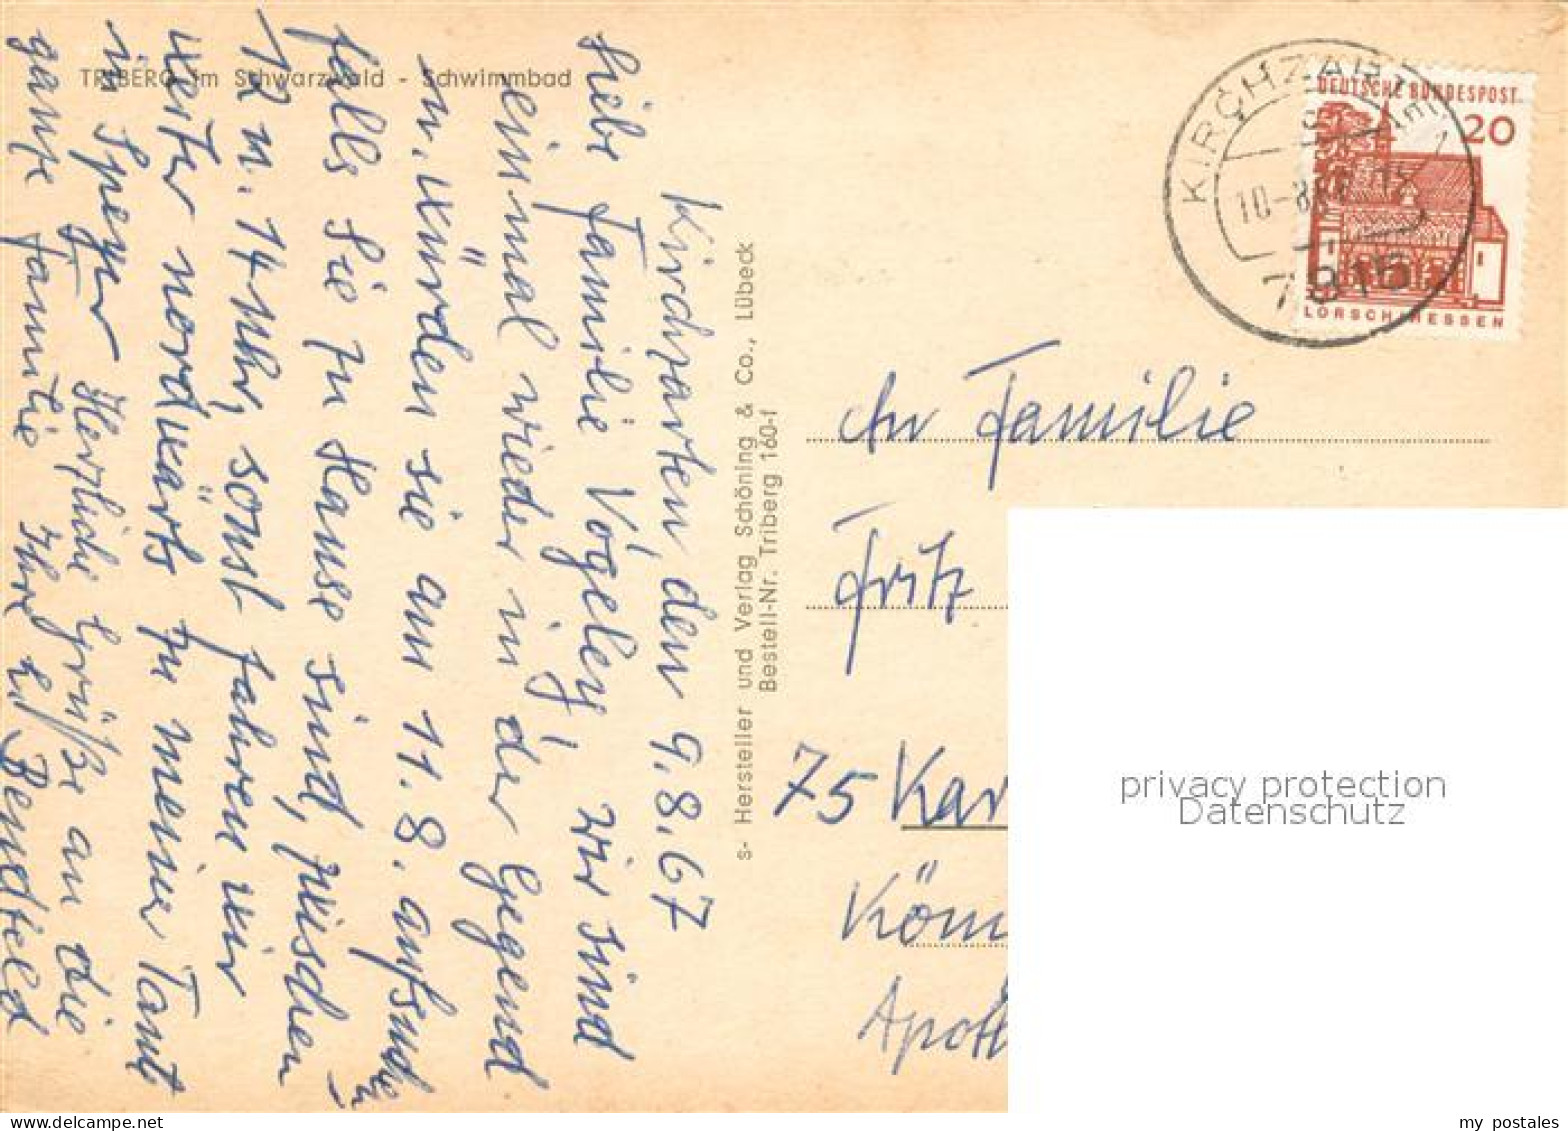 TRIBERG im Schwarzwald - Schwimmbad
Kirchzarten, den 9.8.67
Liebe Familie Vögeley, wir sind
einmal wieder in der Gegend
u. würden sie am 11.8. aufsuchen
falls Sie zu Hause sind, zwischen
12 u. 14 Uhr, sonst fahren wir
weiter nordwärts zu meiner Tante
in Speyer. Herzliche Grüße an die
ganze Familie Ihre
s- Hersteller und Verlag Schöning & Co., Lübeck
Bestell-Nr. Triberg 160-f
KIRCHZARTEN
10.-8.
7815
DEUTSCHE BUNDESPOST
20
LORSCH HESSEN
An Familie
Fritz
75 Kar
Apoth
privacy protection
Datenschutz
my postales